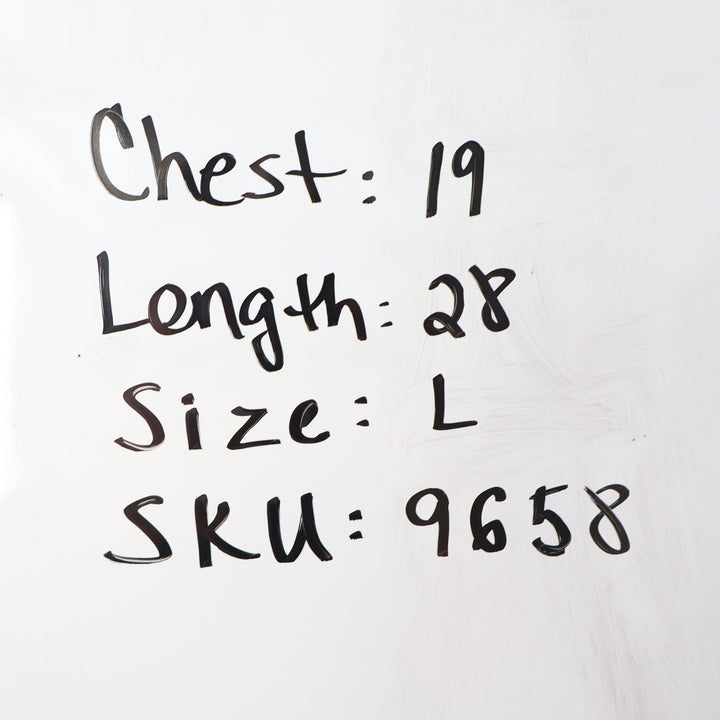 Chest: 19
Length: 28
Size: L
SKU: 9658